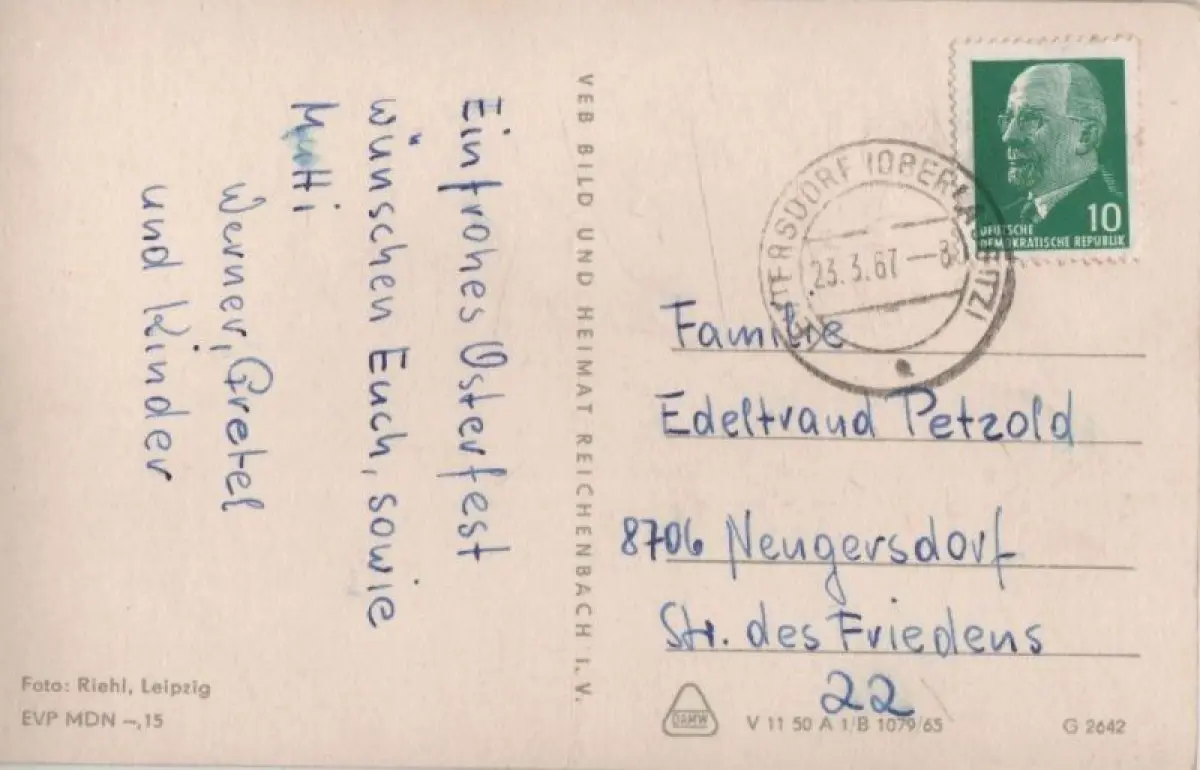 Ein frohes Osterfest
wünschen Euch, sowie
Mutti
Werner, Gretel
und Kinder
Foto: Riehl, Leipzig
EVP MDN –,15
VEB BILD UND HEIMAT REICHENBACH I. V.
10
DEUTSCHE
DEMOKRATISCHE REPUBLIK
(OBERLAUSITZ)
23.3.67
Familie
Edeltraud Petzold
8706 Neugersdorf
Str. des Friedens
22
DAMW
V 11 50 A 1/B 1079/65
G 2642